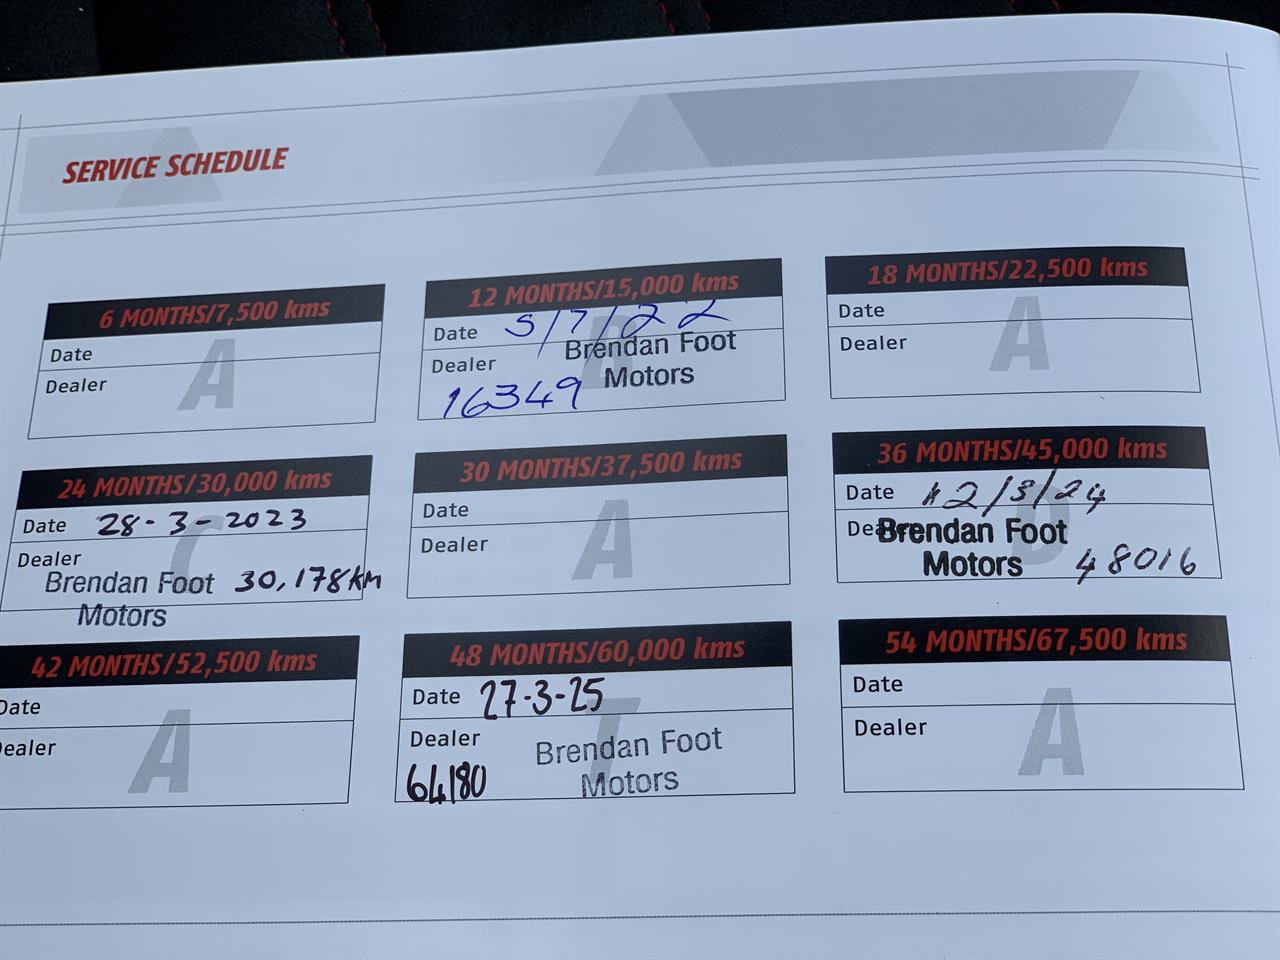 SERVICE SCHEDULE
6 MONTHS/7,500 kms
Date
Dealer
A
12 MONTHS/15,000 kms
Date 5/7/22
Dealer Brendan Foot
Motors
16349
18 MONTHS/22,500 kms
Date
Dealer
A
24 MONTHS/30,000 kms
Date 28-3-2023
Dealer
Brendan Foot 30,178KM
Motors
30 MONTHS/37,500 kms
Date
Dealer
A
36 MONTHS/45,000 kms
Date 12/3/24
Dealer Brendan Foot
Motors 48016
42 MONTHS/52,500 kms
Date
Dealer
A
48 MONTHS/60,000 kms
Date 27-3-25
Dealer
Brendan Foot
Motors
64180
54 MONTHS/67,500 kms
Date
Dealer
A